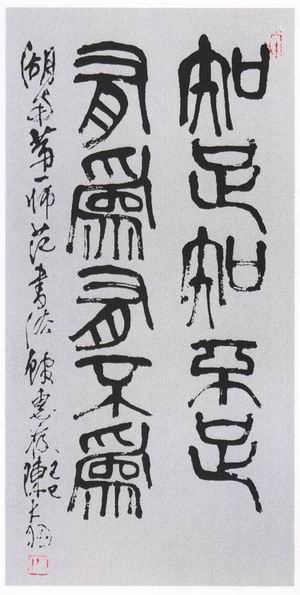 知足知不足
有爲有不爲
湖南第一师范書法館惠存己巳陳大羽